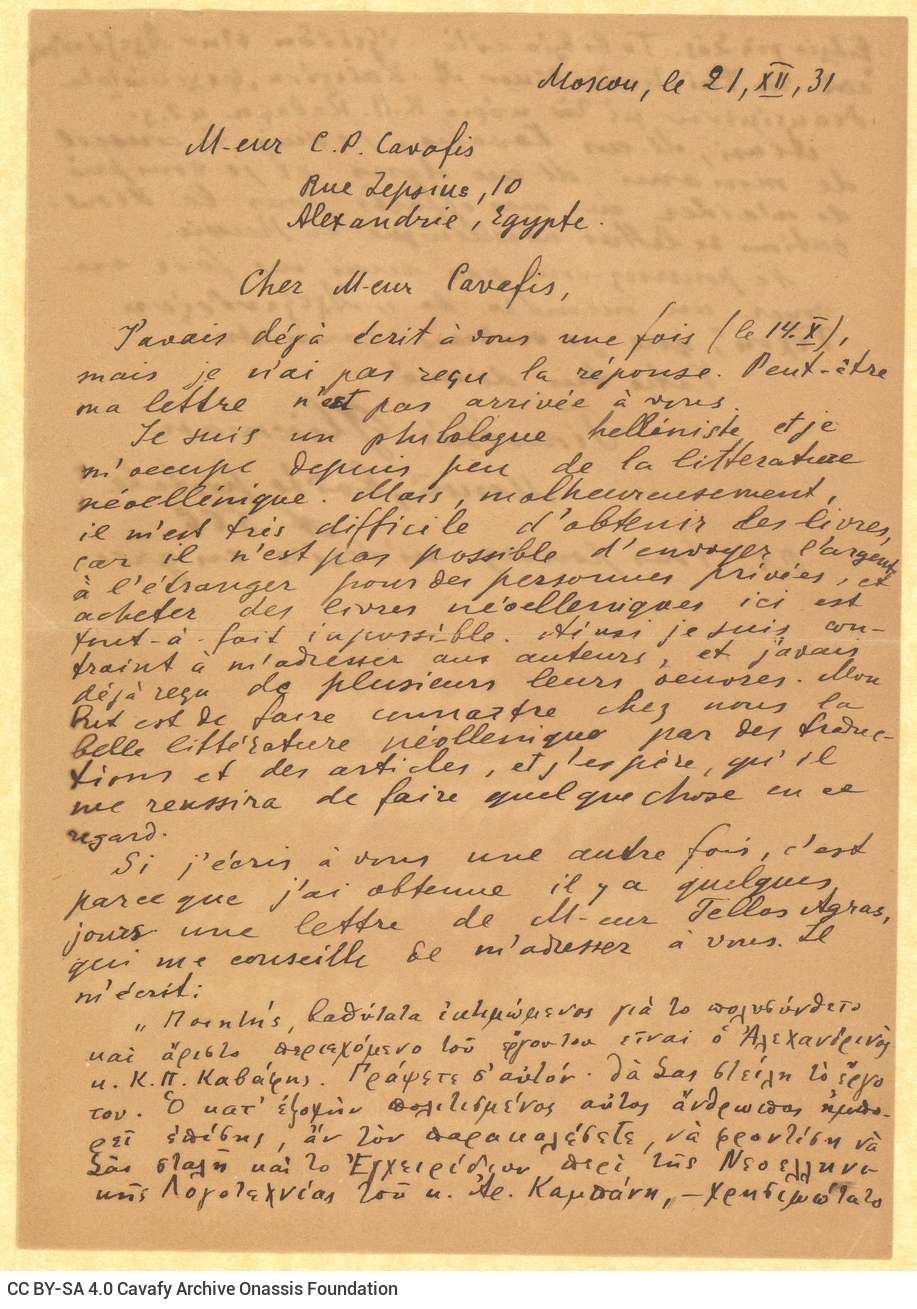 Moscou, le 21, XII, 31
M-eur C. P. Cavafis
Rue Lepsius, 10
Alexandrie, Egypte.
Cher M-eur Cavafis,
J'avais déjà écrit à vous une fois (le 14. X),
mais je n'ai pas reçu la réponse. Peut-être
ma lettre n'est pas arrivée à vous.
Je suis un philologue helléniste et je
m'occupe depuis peu de la littérature
néoellénique. Mais, malheureusement,
il m'est très difficile d'obtenir des livres,
car il n'est pas possible d'envoyer l'argent
à l'étranger pour des personnes privées, et
acheter des livres néoelleniques ici est
tout-à-fait impossible. Ainsi je suis con-
traint à m'adresser aux auteurs, et j'avais
déjà reçu de plusieurs leurs oeuvres. Mon
but est de faire connaître chez nous la
belle littérature néollenique par des traduc-
tions et des articles, et j'espère, qu'il
me reussira de faire quelque chose en ce
regard.
Si j'écris à vous une autre fois, c'est
parce que j'ai obtenue il y a quelques
jours une lettre de M-eur Tellos Agras,
qui me conseille de m'adresser à vous. Il
m'écrit:
„Ποιητής, βαθύτατα ἐκτιμώμενος γιὰ τὸ πολυσύνθετο
καὶ ἄριστο περιεχόμενο τοῦ ἔργου του εἶναι ὁ Ἀλεχανδρινὸς
κ. Κ. Π. Καβάφης. Γράψετε σ'αὐτόν· θὰ Σας στείλη τὸ ἔργο
του. Ὁ κατ' ἐξοχὴν πολιτισμένος αὐτος ἄνθρωπος ἠμπο-
ρεῖ ἐπίσης, ἂν τὸν παρακαλέσετε, νὰ φροντίση νὰ
Σᾶς σταλῆ καὶ το Ἐγχειρίδιον περὶ τῆς Νεοελληνι-
κῆς Λογοτεχνίας τοῦ κ. Ἀρ. Καμπάνη, – χρησιμώτατο
CC BY-SA 4.0 Cavafy Archive Onassis Foundation